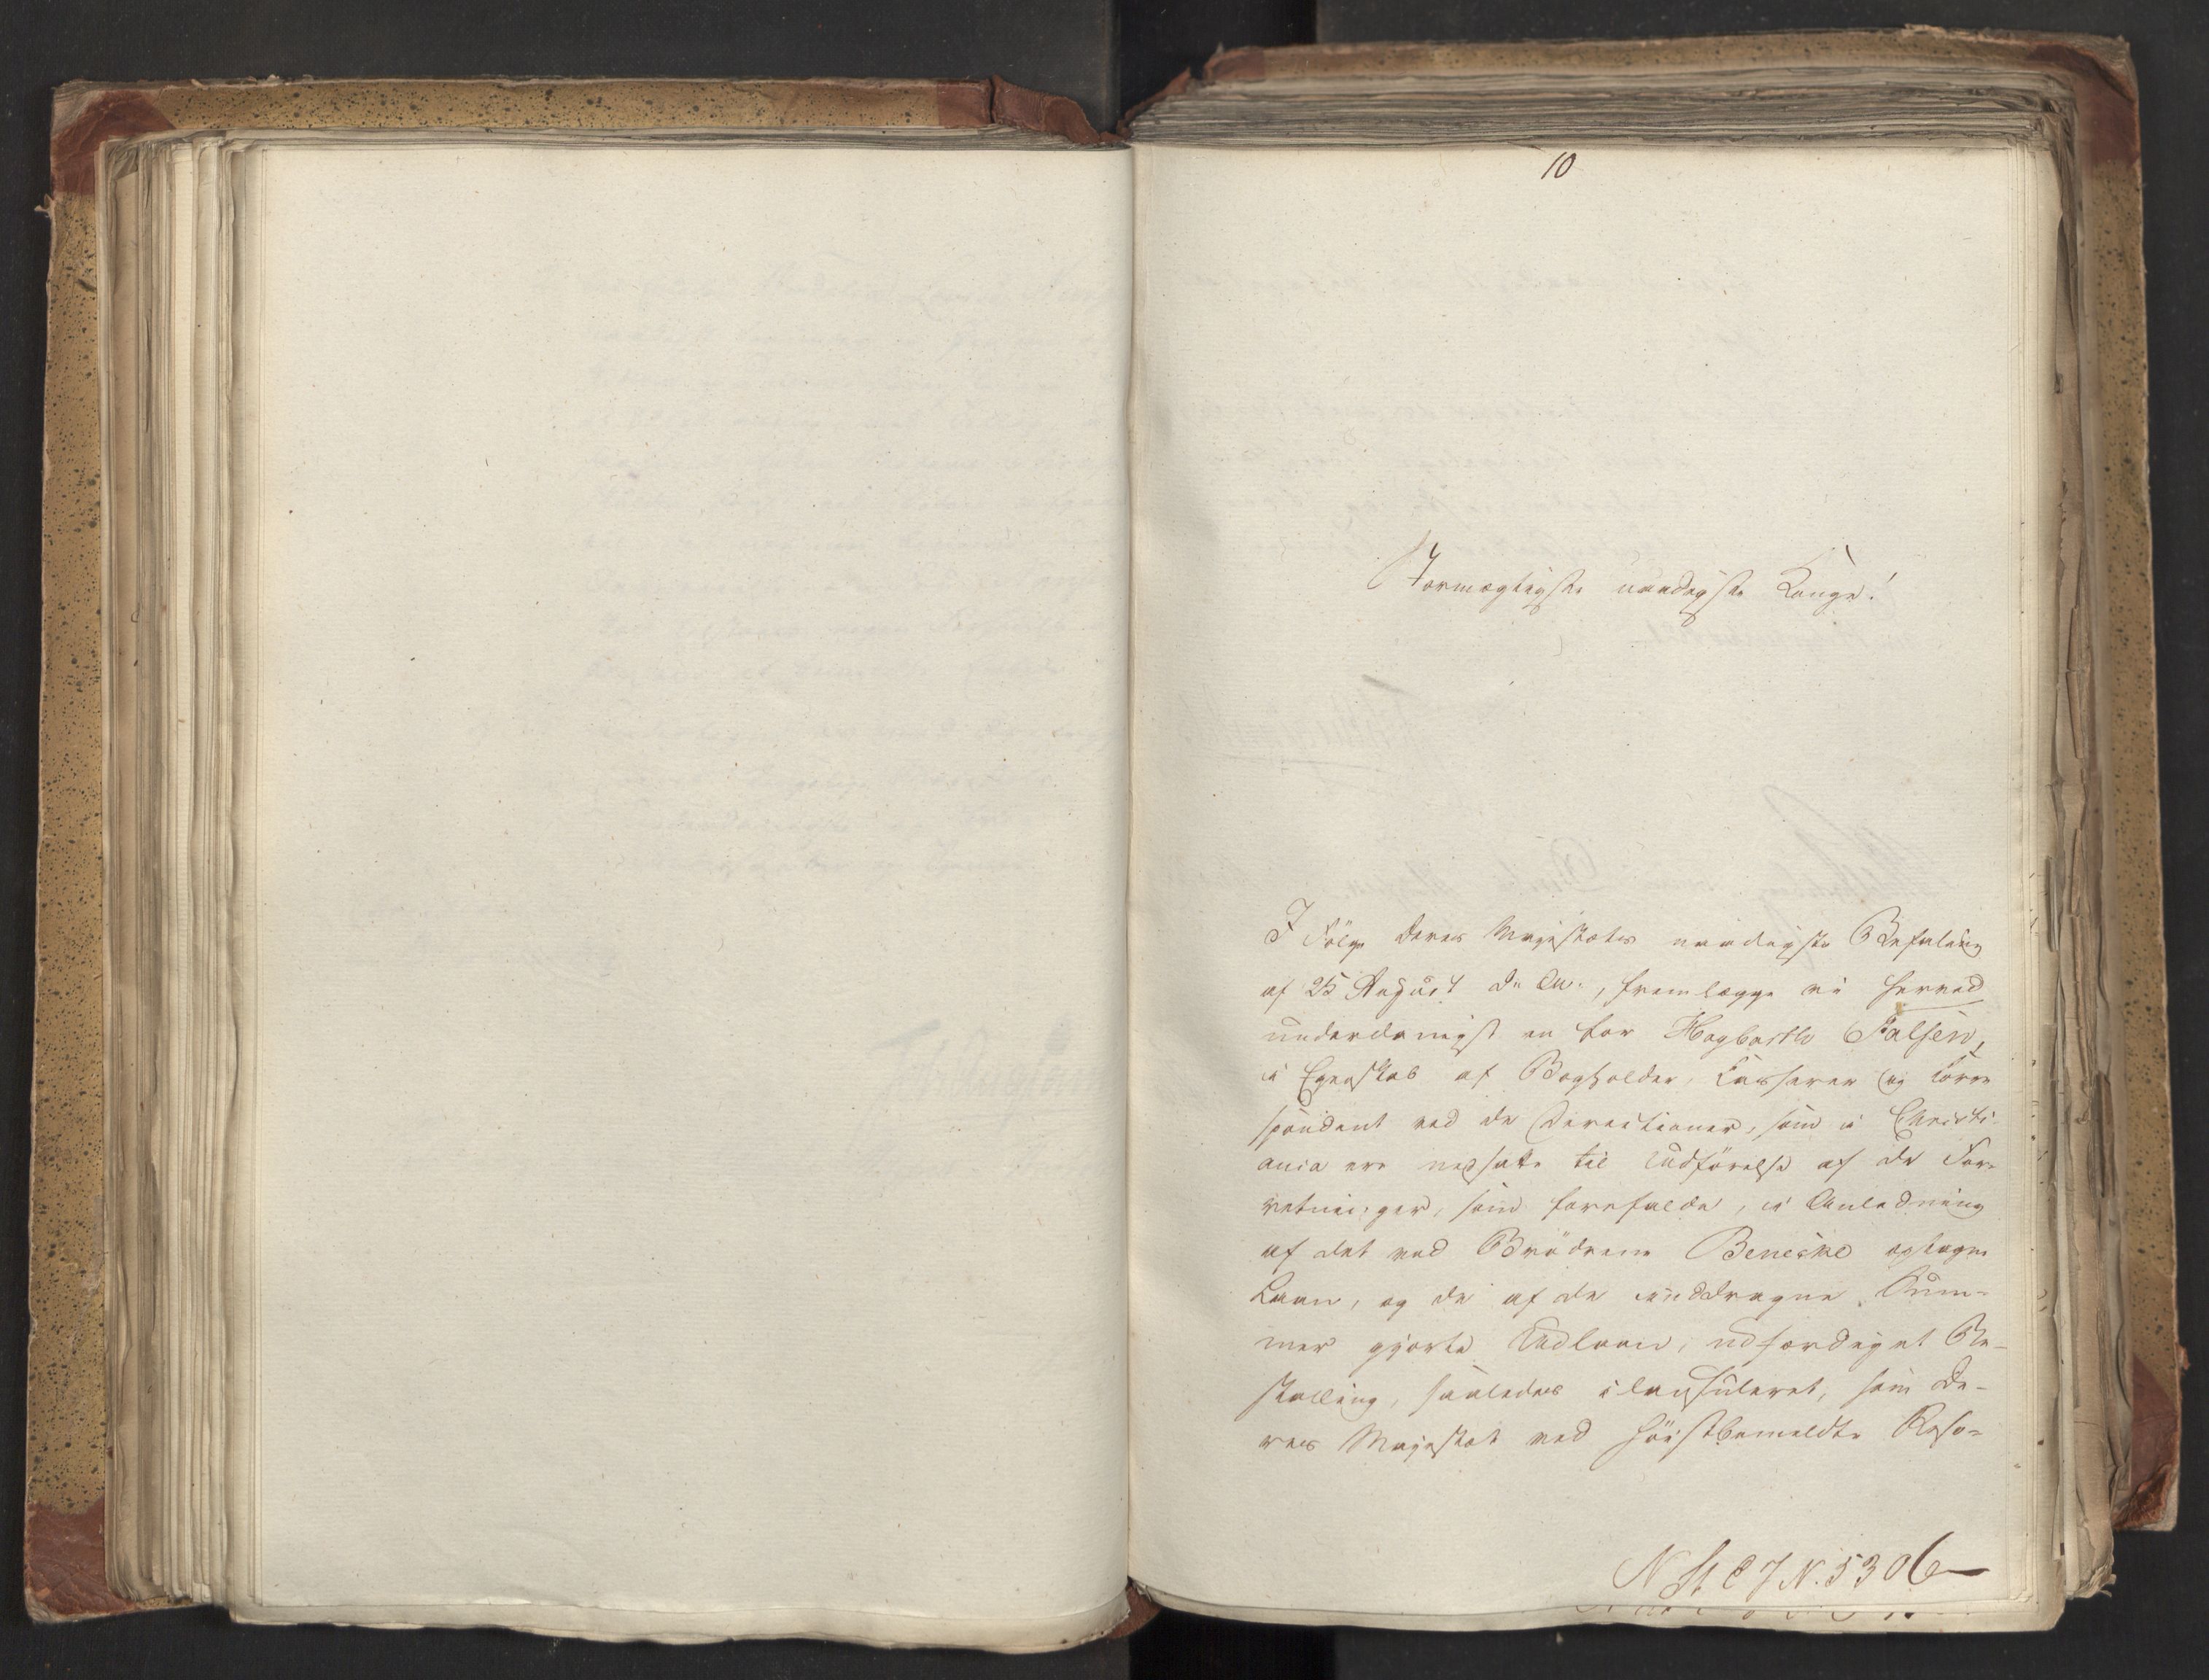 10
Stormægtigste naadigste Konge!
I Følge Deres Majestæts naadigste Befaling
af 25 August d. A., fremlægge vi herved
underdanigst en for Hagbarth Falsen,
i Egenskab af Bogholder, Casserer og Corre
spondent ved de Directioner, som i Christi
ania ere nedsatte til Udførelse af de For-
retninger, som forefalde, i Anledning
af det ved Brødrene Benecke optagne
Laan, og de af de inddragne Sum-
mer gjorte Udlaan, udfærdiget Be-
stalling, saaledes clausuleret, som De-
res Majestæt ved høistbemeldte Reso-
N St C J N. 5306